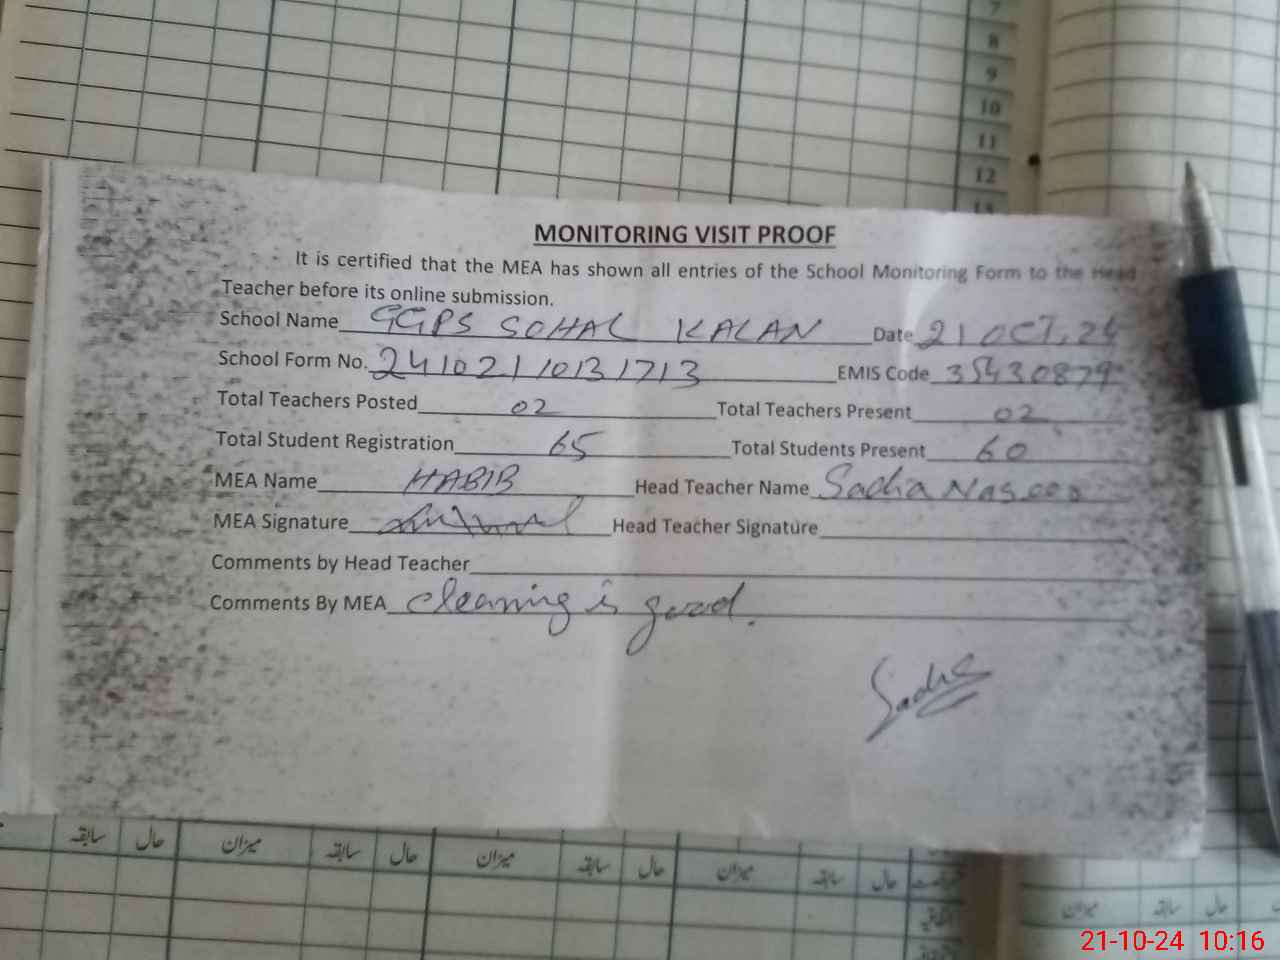 7
8
9
10
11
12
13
MONITORING VISIT PROOF
It is certified that the MEA has shown all entries of the School Monitoring Form to the Head
Teacher before its online submission.
School Name GGPS SOHAL KALAN Date 21 OCT, 24
School Form No. 24102110131713 EMIS Code 35430879
Total Teachers Posted 02 Total Teachers Present 02
Total Student Registration 65 Total Students Present 60
MEA Name HABIB Head Teacher Name Sadia Naseer
MEA Signature Head Teacher Signature
Comments by Head Teacher
Comments By MEA cleaning is good.
Sadia
سابقہ حال میزان سابقہ حال میزان سابقہ حال میزان سابقہ حال
میزان سابقہ حال
21-10-24 10:16